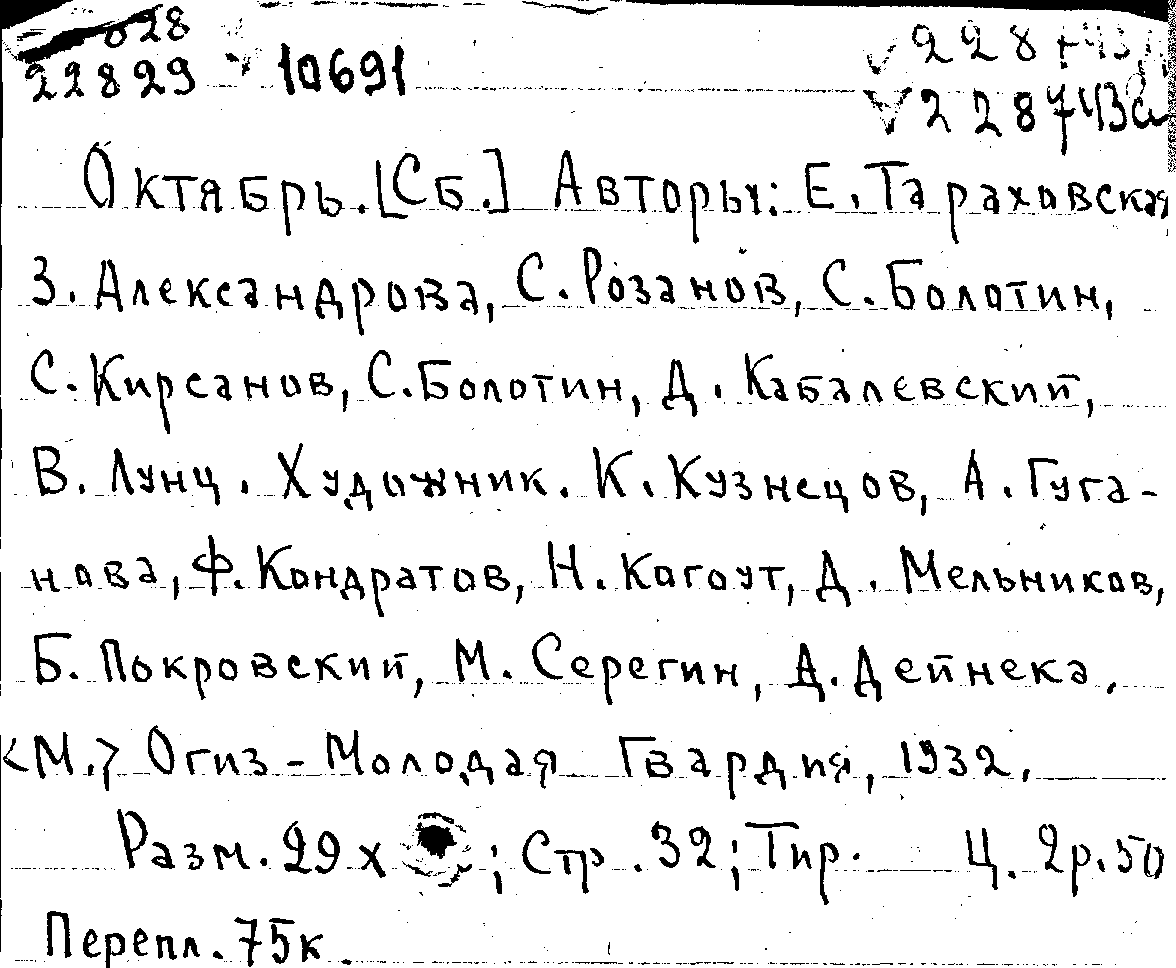 828
22829 10691 228743а
228743а
Октябрь. [Сб.] Авторы: Е. Тараховская
З. Александрова, С. Розанов, С. Болотин,
С. Кирсанов, С. Болотин, Д. Кабалевский,
В. Лунц. Художник. К. Кузнецов, А. Гуга-
нова, Ф. Кондратов, Н. Когоут, Д. Мельников,
Б. Покровский, М. Серегин, А. Дейнека.
<М.> Огиз-Молодая Гвардия, 1932.
Разм. 29х ; Стр. 32; Тир. Ц. 2р.50
Перепл. 75к.